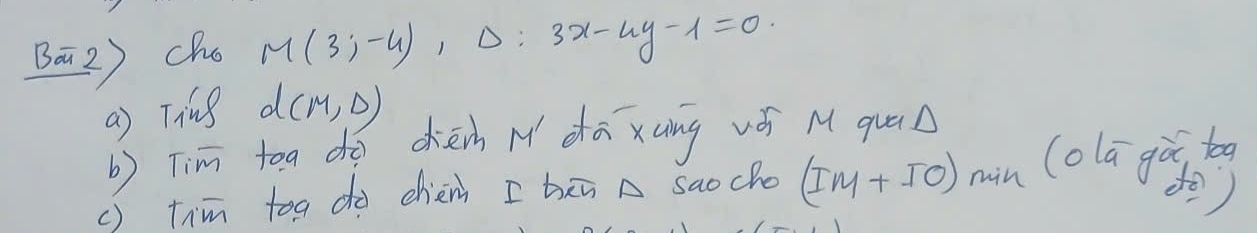 Bài 2) Cho M(3;-4), Δ: 3x-4y-1=0.
a) Tính d(M,Δ)
b) Tìm toạ độ điểm M' đối xứng với M qua Δ
c) Tìm toạ độ điểm I trên Δ sao cho (IM + IO) min (O là gốc toạ độ)